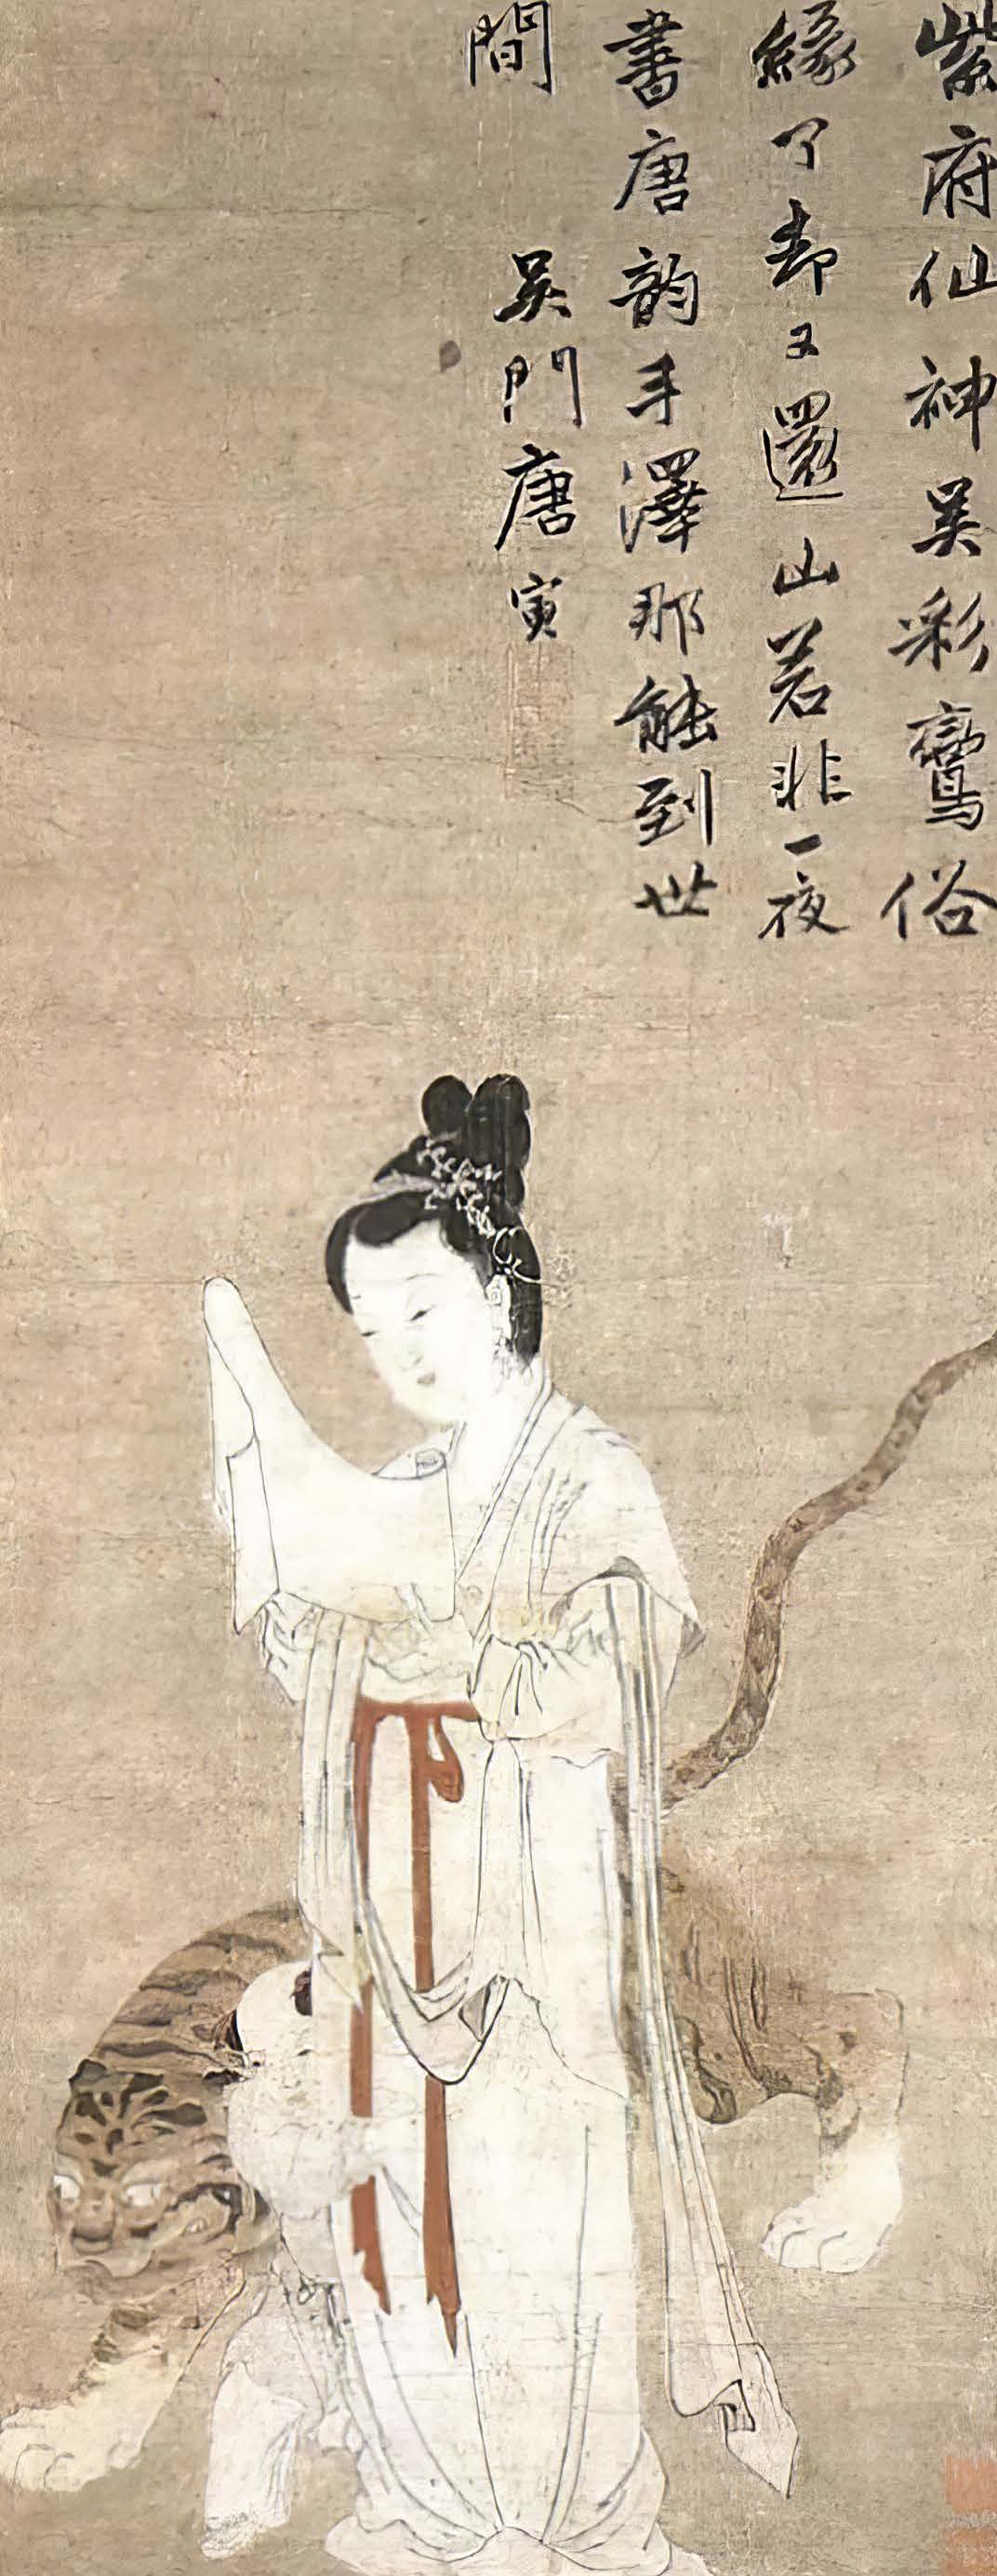 紫府仙神吴彩鸞俗
緣了却又還山若非一夜
書唐韵手澤那能到世
間
吴門唐寅